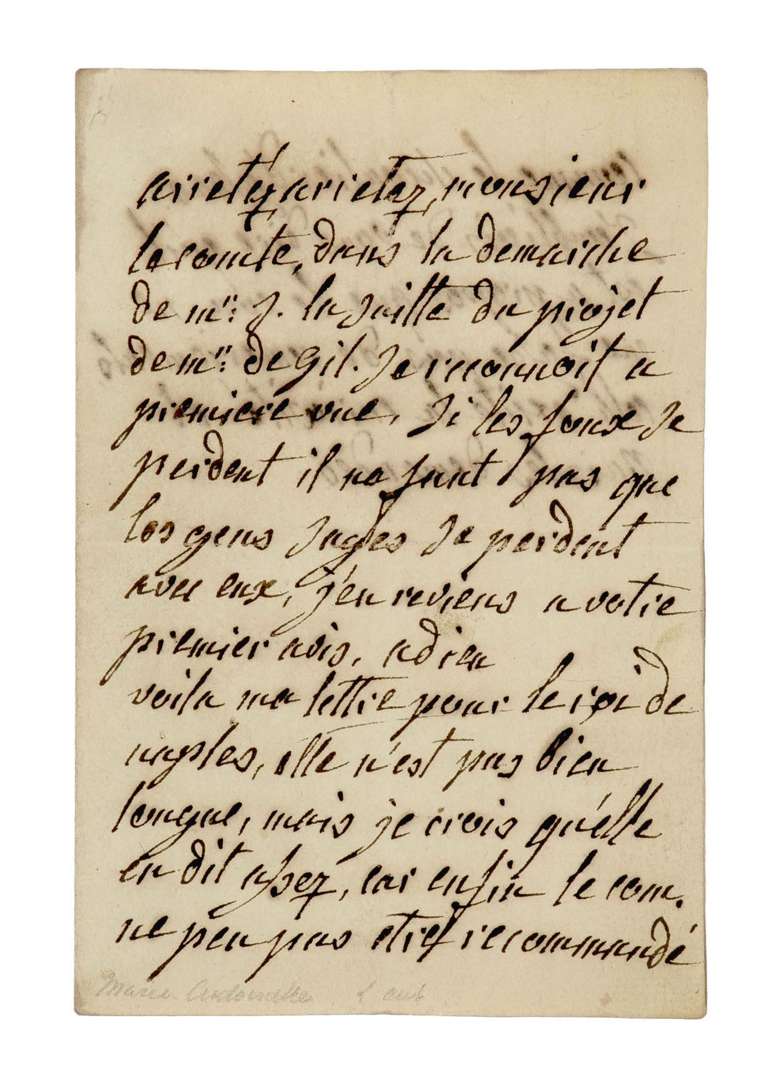 arretéz, arrietez, monsieur
le comte, dans la demarche
de mr: S. la suitte du projet
de mr: de Gil. Se reconnoit a
premiere vue. Si les foux se
perdent il ne faut pas que
les gens sages se perdent
avec eux, j'en reviens a votre
premier avis, adieu
voila ma lettre pour le roi de
naples, elle n'est pas bien
longue, mais je crois qu'elle
en dit assez, car enfin le com.
ne peu pas etre recommandé
Marie Antoinette